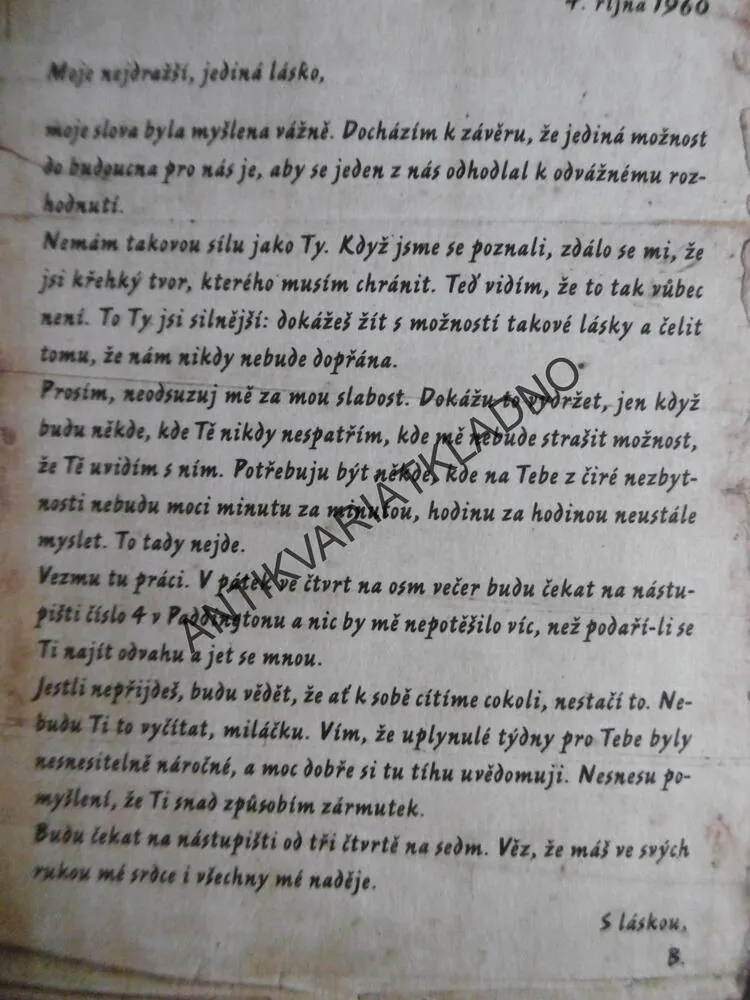 4. října 1960
Moje nejdražší, jediná lásko,
moje slova byla myšlena vážně. Docházím k závěru, že jediná možnost
do budoucna pro nás je, aby se jeden z nás odhodlal k odvážnému roz-
hodnutí.
Nemám takovou sílu jako Ty. Když jsme se poznali, zdálo se mi, že
jsi křehký tvor, kterého musím chránit. Teď vidím, že to tak vůbec
není. To Ty jsi silnější: dokážeš žít s možností takové lásky a čelit
tomu, že nám nikdy nebude dopřána.
Prosím, neodsuzuj mě za mou slabost. Dokážu to vydržet, jen když
budu někde, kde Tě nikdy nespatřím, kde mě nebude strašit možnost,
že Tě uvidím s ním. Potřebuju být někde, kde na Tebe z čiré nezbyt-
nosti nebudu moci minutu za minutou, hodinu za hodinou neustále
myslet. To tady nejde.
Vezmu tu práci. V pátek ve čtvrt na osm večer budu čekat na nástu-
pišti číslo 4 v Paddingtonu a nic by mě nepotěšilo víc, než podaří-li se
Ti najít odvahu a jet se mnou.
Jestli nepřijdeš, budu vědět, že ať k sobě cítíme cokoli, nestačí to. Ne-
budu Ti to vyčítat, miláčku. Vím, že uplynulé týdny pro Tebe byly
nesnesitelně náročné, a moc dobře si tu tíhu uvědomuji. Nesnesu po-
myšlení, že Ti snad způsobím zármutek.
Budu čekat na nástupišti od tři čtvrtě na sedm. Věz, že máš ve svých
rukou mé srdce i všechny mé naděje.
S láskou,
B.
ANTIKVARIATKLADNO